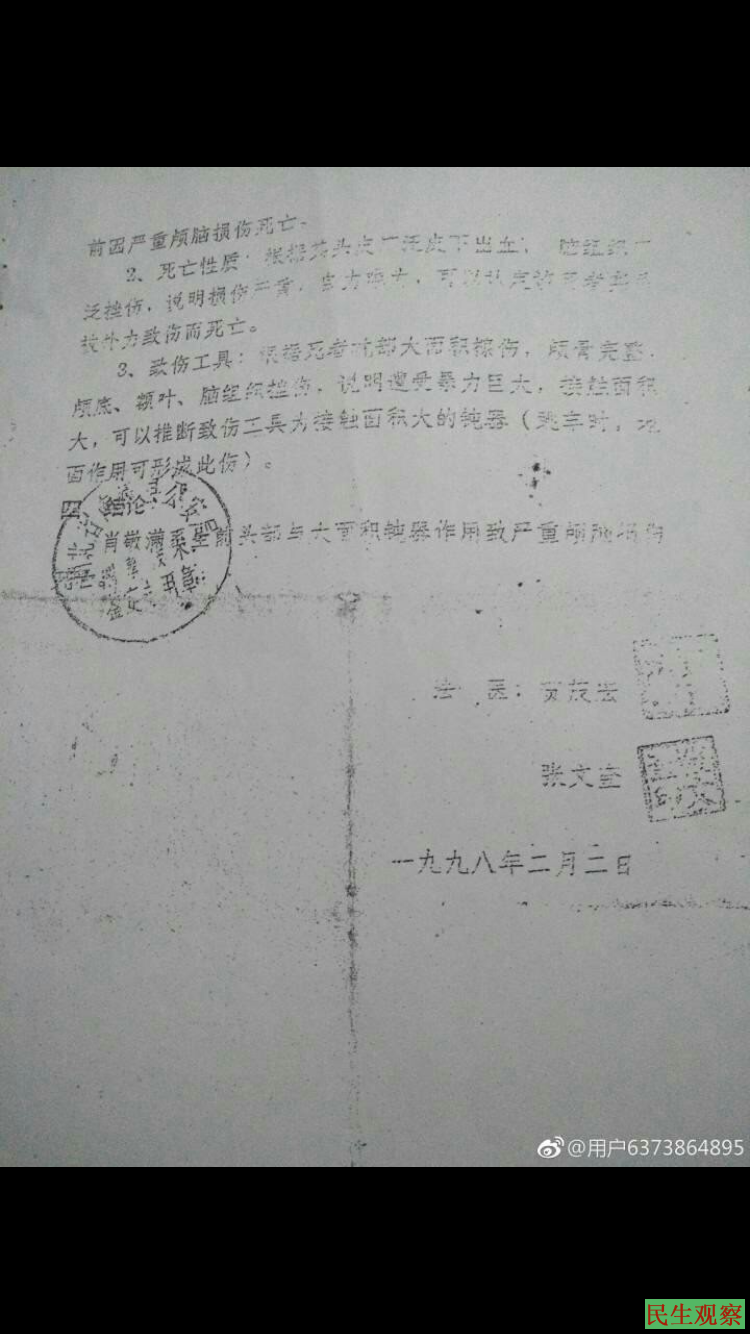 前因严重颅脑损伤死亡。
2、死亡性质：根据 头皮广泛皮下出血， 脑组织广
泛挫伤，说明损伤严重，
外力致伤而死亡。
3、致伤工具：根据死者 部大面积擦伤，颅骨完整，
颅底、额叶、脑组织挫伤，说明遭受暴力巨大，接触面积
大，可以推断致伤工具为接触面积大的钝器（跳车时，地
面作用可形成此伤）。
四、结论
肖敬 生前头部与大面积钝器作用致严重颅脑损伤
鉴定专用章
法 医：贾茂
张文
一九九八年二月二日
@用户6373864895
民生观察